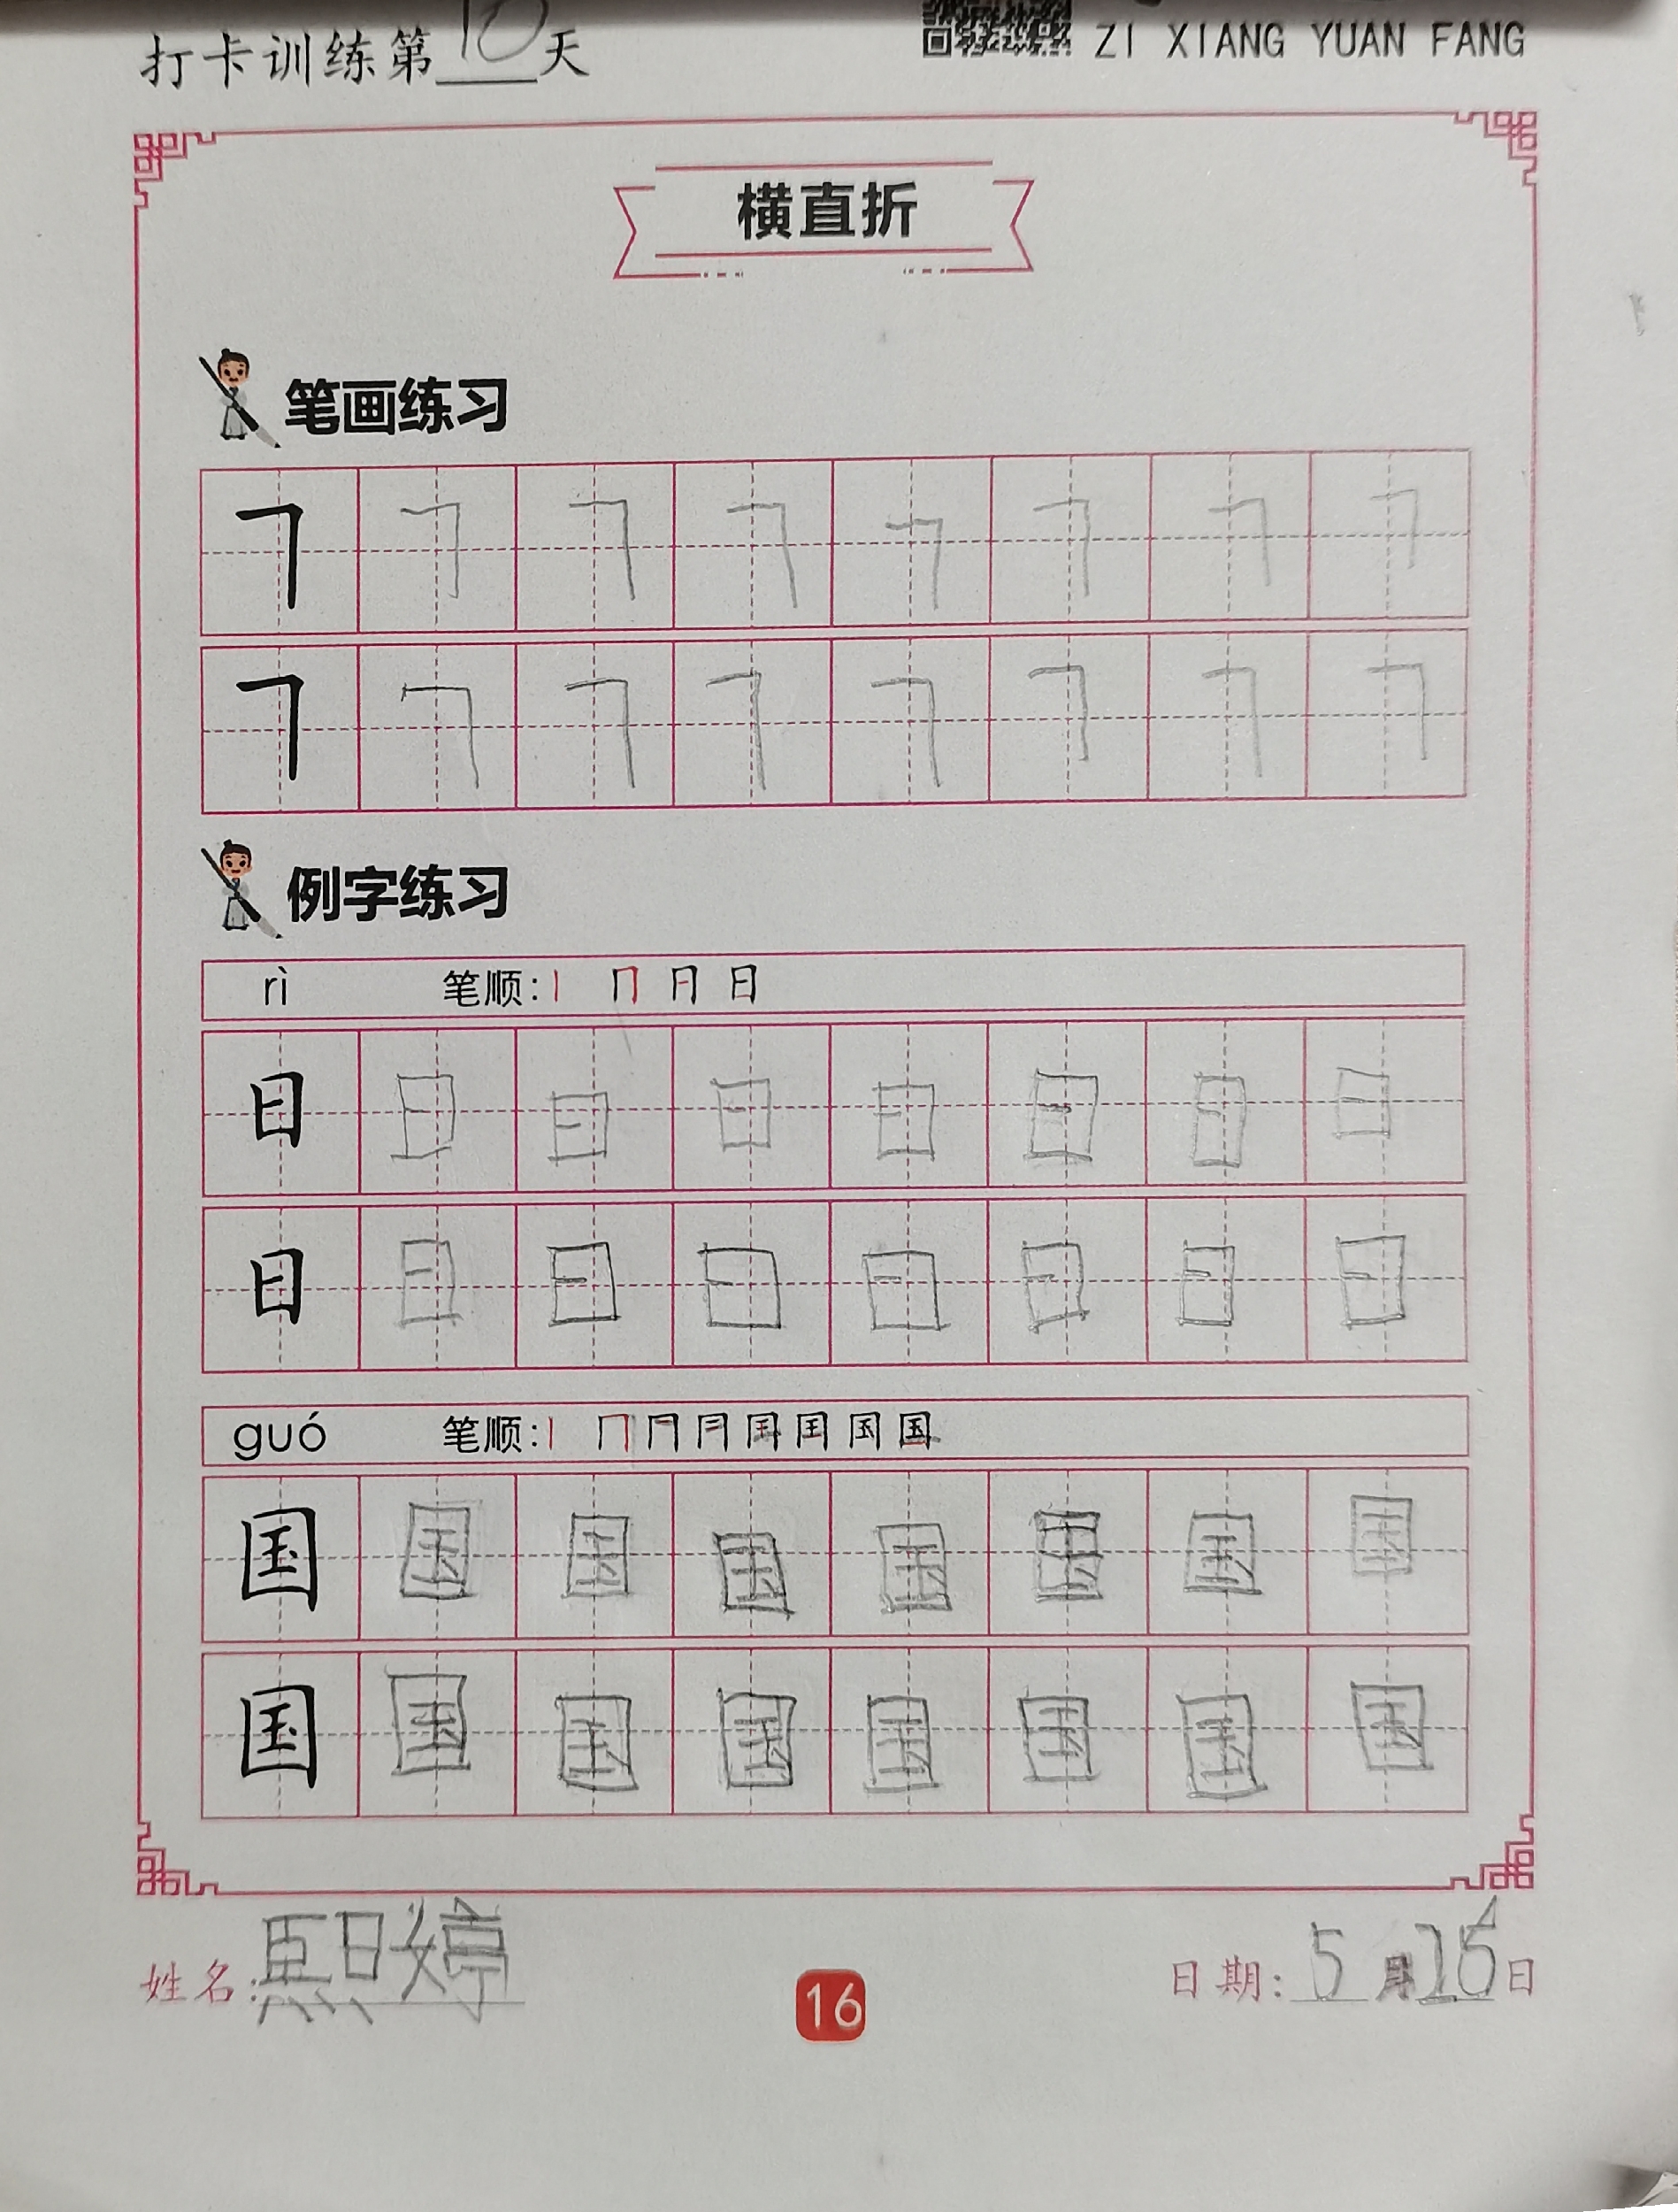 打卡训练第10天
ZI XIANG YUAN FANG
横直折
笔画练习
㇕ ㇕ ㇕ ㇕ ㇕ ㇕ ㇕ ㇕
㇕ ㇕ ㇕ ㇕ ㇕ ㇕ ㇕ ㇕
例字练习
rì 笔顺: 丨 冂 日 日
日 日 日 日 日 日 日 日
日 日 日 日 日 日 日 日
guó 笔顺:
国 国 国 国 国 国 国 国
国 国 国 国 国 国 国 国
姓名: 熙婷
16
日期: 5月16日